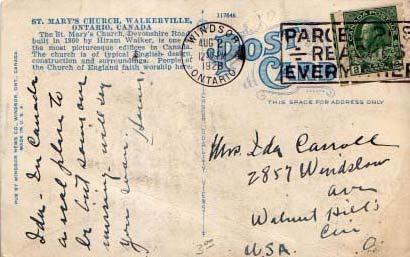 ST. MARY'S CHURCH, WALKERVILLE,
ONTARIO, CANADA
The St. Mary's Church, Devonshire Road
built in 1900 by Hiram Walker, is one
the most picturesque edifices in Canada.
The church is of typical English design,
construction and surroundings. People of
the Church of England faith worship here
117646
WINDSOR
AUG 2
12 PM
1928
ONTARIO
Post
PARCE
REA
EVERYWHERE
THIS SPACE FOR ADDRESS ONLY
PUB BY WINDSOR NEWS CO., WINDSOR, ONT. CANADA
MADE IN U.S.A.
Ida - In Canada
a real place to
be but some
morning will
you soon
Mrs. Ida Carroll
2857 Windslow
Ave
Walnut Hills
Cin
O.
USA.
3.00